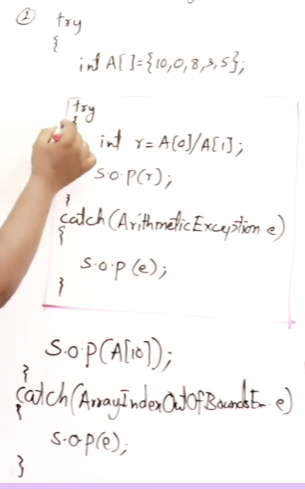 ② try
{
int A[]={10,0,8,3,5};
try
{
int r=A[0]/A[1];
S.O.P(r);
}
catch(ArithmeticException e)
{
S.O.P(e);
}
S.O.P(A[10]);
}
catch(ArrayIndexOutOfBoundsEx- e)
{
S.O.P(e);
}